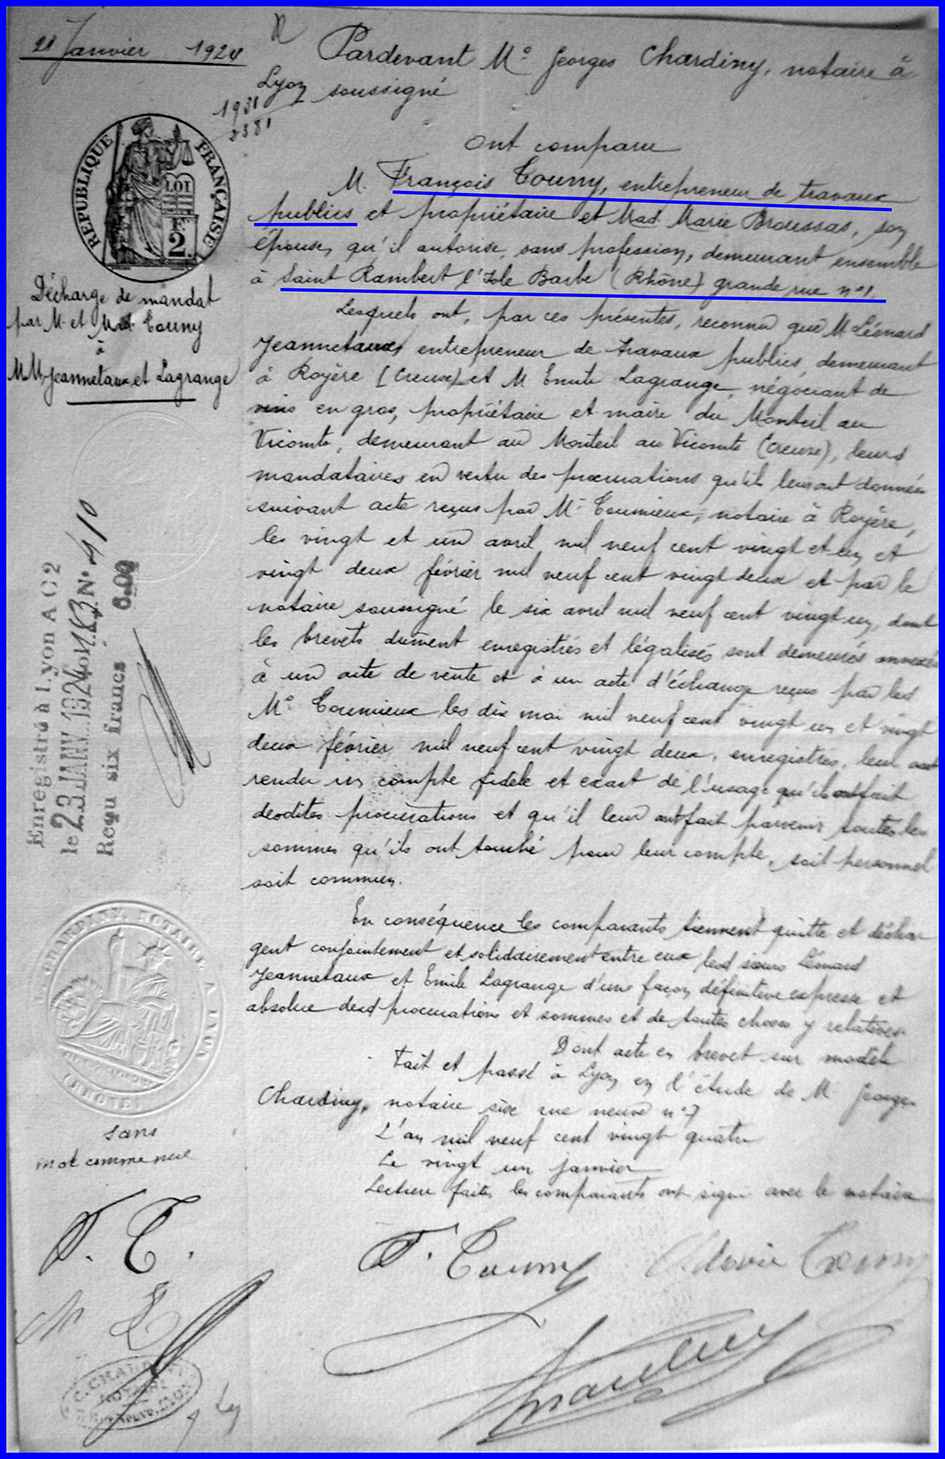 21 Janvier 1924
Pardevant Me Georges Chardiny, notaire à
Lyon soussigné
1931
2381
Ont comparu
M. François Touny, entrepreneur de travaux
publics et propriétaire et Mad Marie Broussas, son
épouse, qu'il autorise, sans profession, demeurant ensemble
à Saint Rambert l'Isle Barbe (Rhône) grande rue n° 1.
Lesquels ont, par ces présentes, reconnu que M Léonard
Jeannetaux, entrepreneur de travaux publics, demeurant
à Royère (Creuse) et M Emile Lagrange, négociant de
vins en gros, propriétaire et maire du Monteil au
Vicomte, demeurant au Monteil au Vicomte (Creuse), leurs
mandataires en vertu des procurations qu'ils leur ont données
suivant acte reçus par Me Toumieux, notaire à Royère,
les vingt et un avril mil neuf cent vingt et un et
vingt deux février mil neuf cent vingt deux et par le
notaire soussigné le six avril mil neuf cent vingt un, dont
les brevets dument enregistrés et légalisés sont demeurés annexés
à un acte de vente et à un acte d'échange reçus par led
Me Toumieux les dix mai mil neuf cent vingt un et vingt
deux février mil neuf cent vingt deux, enregistrés, leur ont
rendu un compte fidèle et exact de l'usage qu'ils ont fait
desdites procurations et qu'il leur ont fait parvenir toutes les
sommes qu'ils ont touché pour leur compte, soit personnel
soit commun.
En conséquence les comparants tiennent quitte et déchar
gent conjointement et solidairement entre eux lesd sieurs Léonard
Jeannetaux et Emile Lagrange d'une façon définitive expresse et
absolue desd procurations et sommes et de toutes choses y relatives
Dont acte en brevet sur modèle
Fait et passé à Lyon en l'étude de Me Georges
Chardiny, notaire sise rue neuve n° 7
L'an mil neuf cent vingt quatre
Le vingt un janvier
Lecture faite, les comparants ont signé avec le notaire
F. Touny Marie Touny
RÉPUBLIQUE FRANÇAISE
LOI
2F
Décharge de mandat
par M. et Mad Touny
à
MM Jeannetaux et Lagrange
Enregistré à Lyon A C 2
le 23 JANV. 1924 N° 410
Reçu six francs 6.00
CHARDINY, NOTAIRE A LYON
(RHÔNE)
sans
mot comme nul
F. T.
G. CHARDINY
NOTAIRE
LYON